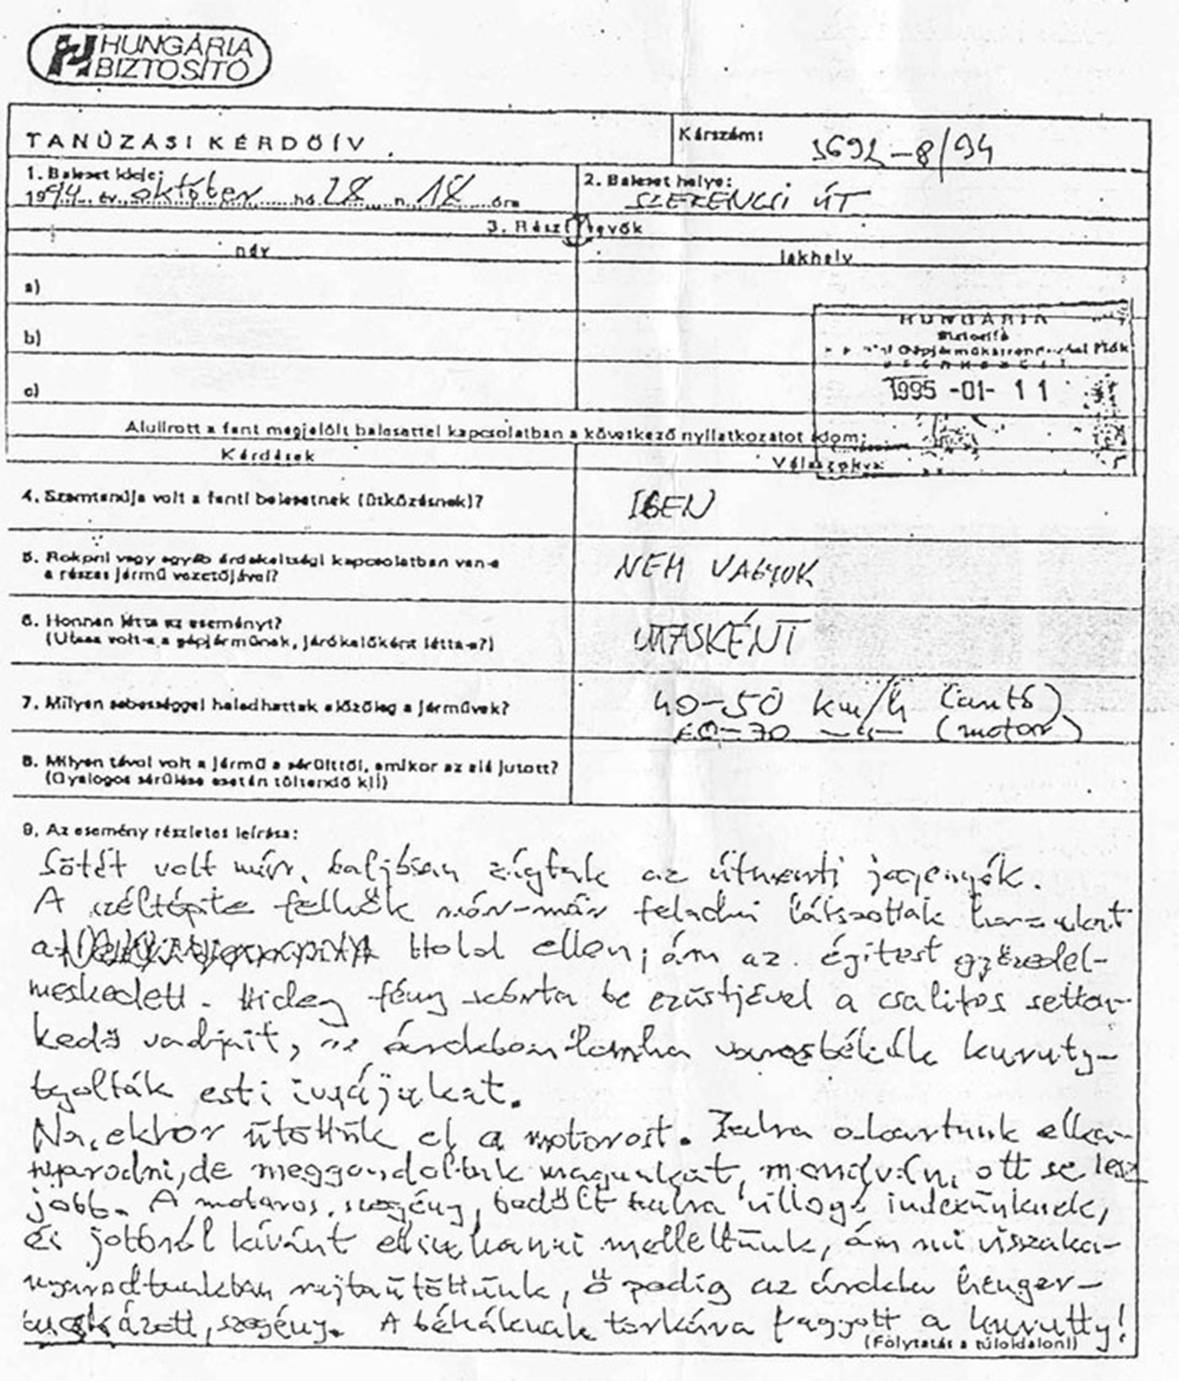 HUNGÁRIA
BIZTOSÍTÓ
TANÚZÁSI KÉRDŐÍV
Kárszám:
3692-8/94
1. Baleset ideje:
1994 év október hó 28 n. 18 óra
2. Baleset helye:
SZERENCSI ÚT
3. Résztvevők
név
lakhely
a)
b)
c)
HUNGÁRIA
Biztosító
1995 -01- 11
Alulírott a fent megjelölt balesettel kapcsolatban a következő nyilatkozatot adom:
Kérdések
Válaszok
4. Szemtanúja volt a fenti balesetnek (ütközésnek)?
IGEN
5. Rokoni vagy egyéb érdekeltségi kapcsolatban van-e
a részes jármű vezetőjével?
NEM VAGYOK
6. Honnan látta az eseményt?
(Utasa volt-e a gépjárműnek, járókelőként látta-e?)
UTASKÉNT
7. Milyen sebességgel haladhattak előzőleg a járművek?
40-50 km/h (autó)
60-70 -"- (motor)
8. Milyen távol volt a jármű a sérülttől, amikor az elé jutott?
(Gyalogos sérülése esetén töltendő ki!)
9. Az esemény részletes leírása:
Sötét volt már, baljósan zúgtak az útmenti jegenyék.
A széltépte felhők már-már feladni látszottak harcukat
a Hold ellen, ám az égitest győzedel-
meskedett. Hideg fény szórta be ezüstjével a csalitos setten-
kedő vadjait, az árokban lomha varasbékák kuruty-
tyolták esti imájukat.
Na, ekkor ütöttük el a motorost. Balra akartunk elka-
nyarodni, de meggondoltuk magunkat, mondván, ott se lesz
jobb. A motoros, szegény, bedőlt balra villogó indexünknek,
és jobbról kívánt elsuhanni mellettünk, ám mi visszaka-
nyarodtunkban rajtaütöttünk, ő pedig az árokba henger-
buckázott, szegény. A békáknak torkára fagyott a kurutty!
(Folytatás a túloldalon!)